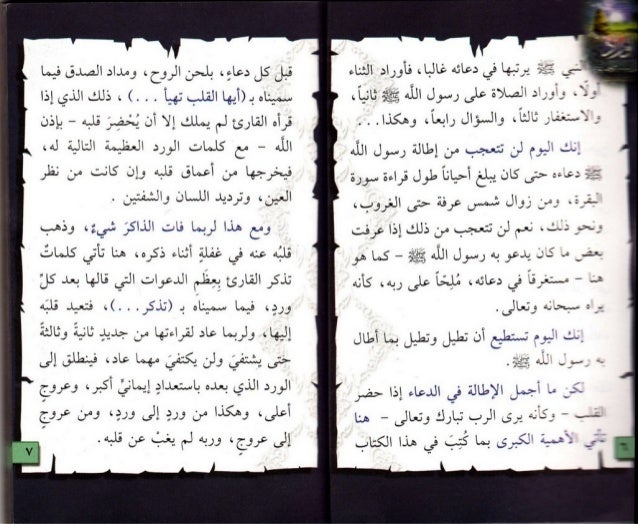 النبي ﷺ يرتبها في دعائه غالبا، فأوراد الثناء
أولًا، وأوراد الصلاة على رسول الله ﷺ ثانياً،
والاستغفار ثالثاً، والسؤال رابعاً، وهكذا...
إنك اليوم لن تتعجب من إطالة رسول اللَّه
ﷺ دعاءه حتى كان يبلغ أحياناً طول قراءة سورة
البقرة، ومن زوال شمس عرفة حتى الغروب،
ونحو ذلك، نعم لن تتعجب من ذلك إذا عرفت
بعض ما كان يدعو به رسول اللَّه ﷺ - كما هو
هنا - مستغرقاً في دعائه، مُلِحّاً على ربه، كأنه
يراه سبحانه وتعالى.
إنك اليوم تستطيع أن تطيل وتطيل بما أطال
به رسول اللَّه ﷺ.
لكن ما أجمل الإطالة في الدعاء إذا حضر
القلب - وكأنه يرى الرب تبارك وتعالى - هنا
تأتي الأهمية الكبرى بما كُتِبَ في هذا الكتاب
٦
قبل كل دعاءٍ، بلحن الروح، ومداد الصدق فيما
سميناه بـ (أيها القلب تهيأ ...)، ذلك الذي إذا
قرأه القارئ لم يملك إلا أن يُحْضِرَ قلبه - بإذن
اللَّه - مع كلمات الورد العظيمة التالية له،
فيخرجها من أعماق قلبه وإن كانت من نظر
العين، وترديد اللسان والشفتين.
ومع هذا لربما فات الذاكرَ شيءٌ، وذهب
قلبُه عنه في غفلةٍ أثناء ذكره، هنا تأتي كلماتٌ
تذكر القارئ بِعِظَمِ الدعوات التي قالها بعد كلِّ
وردٍ، فيما سميناه بـ (تذكر...)، فتعيد قلبَه
إليها، ولربما عاد لقراءتها من جديدٍ ثانيةً وثالثةً
حتى يشتفيَ ولن يكتفيَ مهما عاد، فينطلق إلى
الورد الذي بعده باستعدادٍ إيمانيٍّ أكبر، وعروجٍ
أعلى، وهكذا من وردٍ إلى وردٍ، ومن عروجٍ
إلى عروجٍ، وربه لم يغبْ عن قلبه.
٧